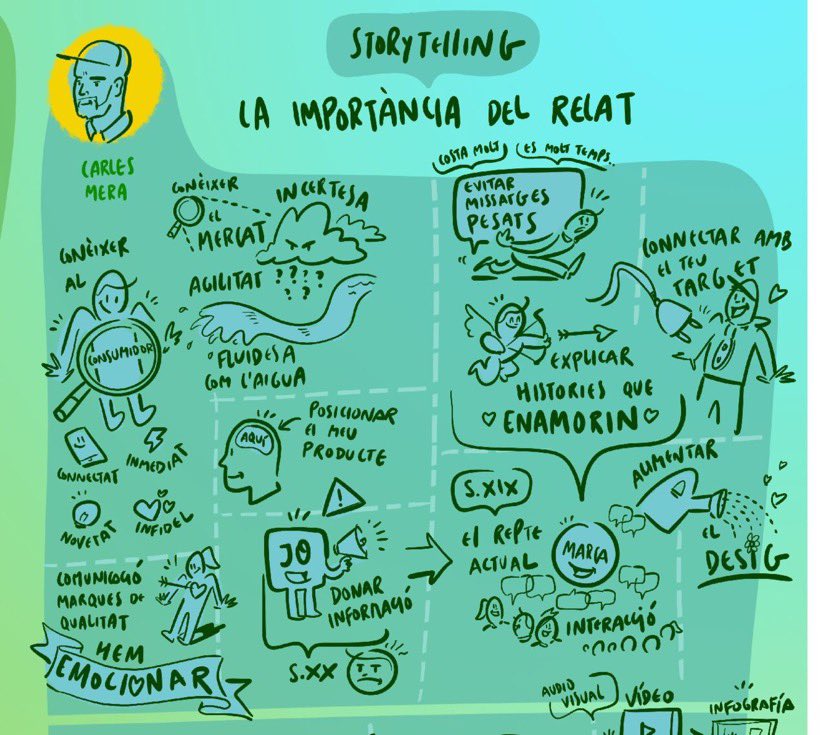 STORYTELLING
LA IMPORTÀNCIA DEL RELAT
CARLES
MERA
CONÈIXER
AL
CONSUMIDOR
CONNECTAT
INMEDIAT
NOVETAT
INFIDEL
CONÈIXER
EL
MERCAT
INCERTESA
AGILITAT ????
???
FLUIDESA
COM L'AIGUA
AQUÍ
POSICIONAR
EL MEU
PRODUCTE
COMUNICACIÓ
MARQUES DE
QUALITAT
HEM
EMOCIONAR
!
JO
DONAR
INFORMACIÓ
S.XX
COSTA MOLT
ES MOLT TEMPS..
EVITAR
MISSATGES
PESATS
CONNECTAR AMB
EL TEU
TARGET
EXPLICAR
HISTORIES QUE
ENAMORIN
S.XIX
EL REPTE
ACTUAL
MARCA
INTERACCIÓ
AUMENTAR
EL
DESIG
AUDIO
VISUAL
VÍDEO
INFOGRAFÍA